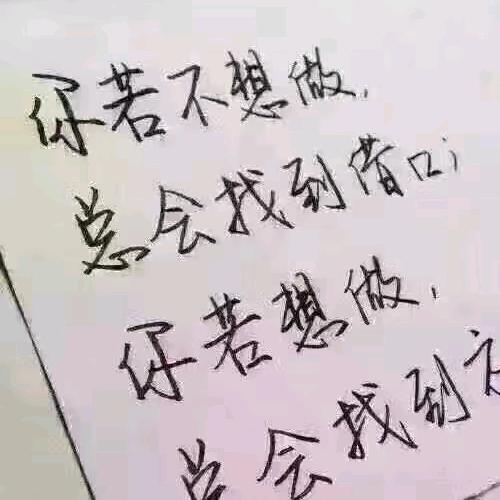 你若不想做,
总会找到借口;
你若想做,
总会找到